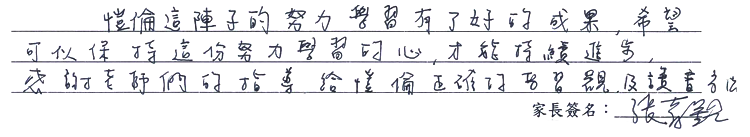 愷倫這陣子的努力學習有了好的成果,希望
可以保持這份努力學習的心,才能持續進步,
感謝老師們的指導給愷倫正確的學習觀及讀書方法
家長簽名:張